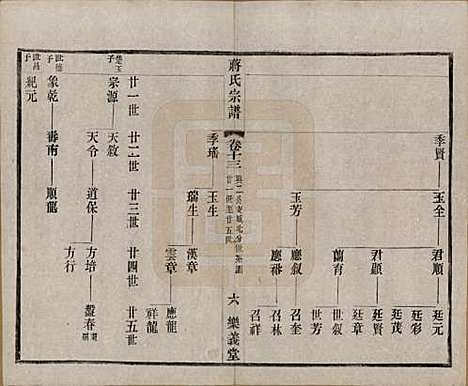 季賢 玉全 君順 廷元
廷彩
君顯 廷茂
廷賢
蘭育 廷章
世叙
玉芳 應叙 世芳
召奎
應裕 召林
召祥
蔣氏宗譜
卷十三
廿一世至廿五世
六 樂義堂
季瑤 玉生
瑞生 漢章
雲章 應龍
祥龍
廿一世 廿二世 廿三世 廿四世 廿五世
宗源 天叙
天令 道保 方培 藎春
方行
世德子
象乾 壽南 順龍
世昌子
紀元